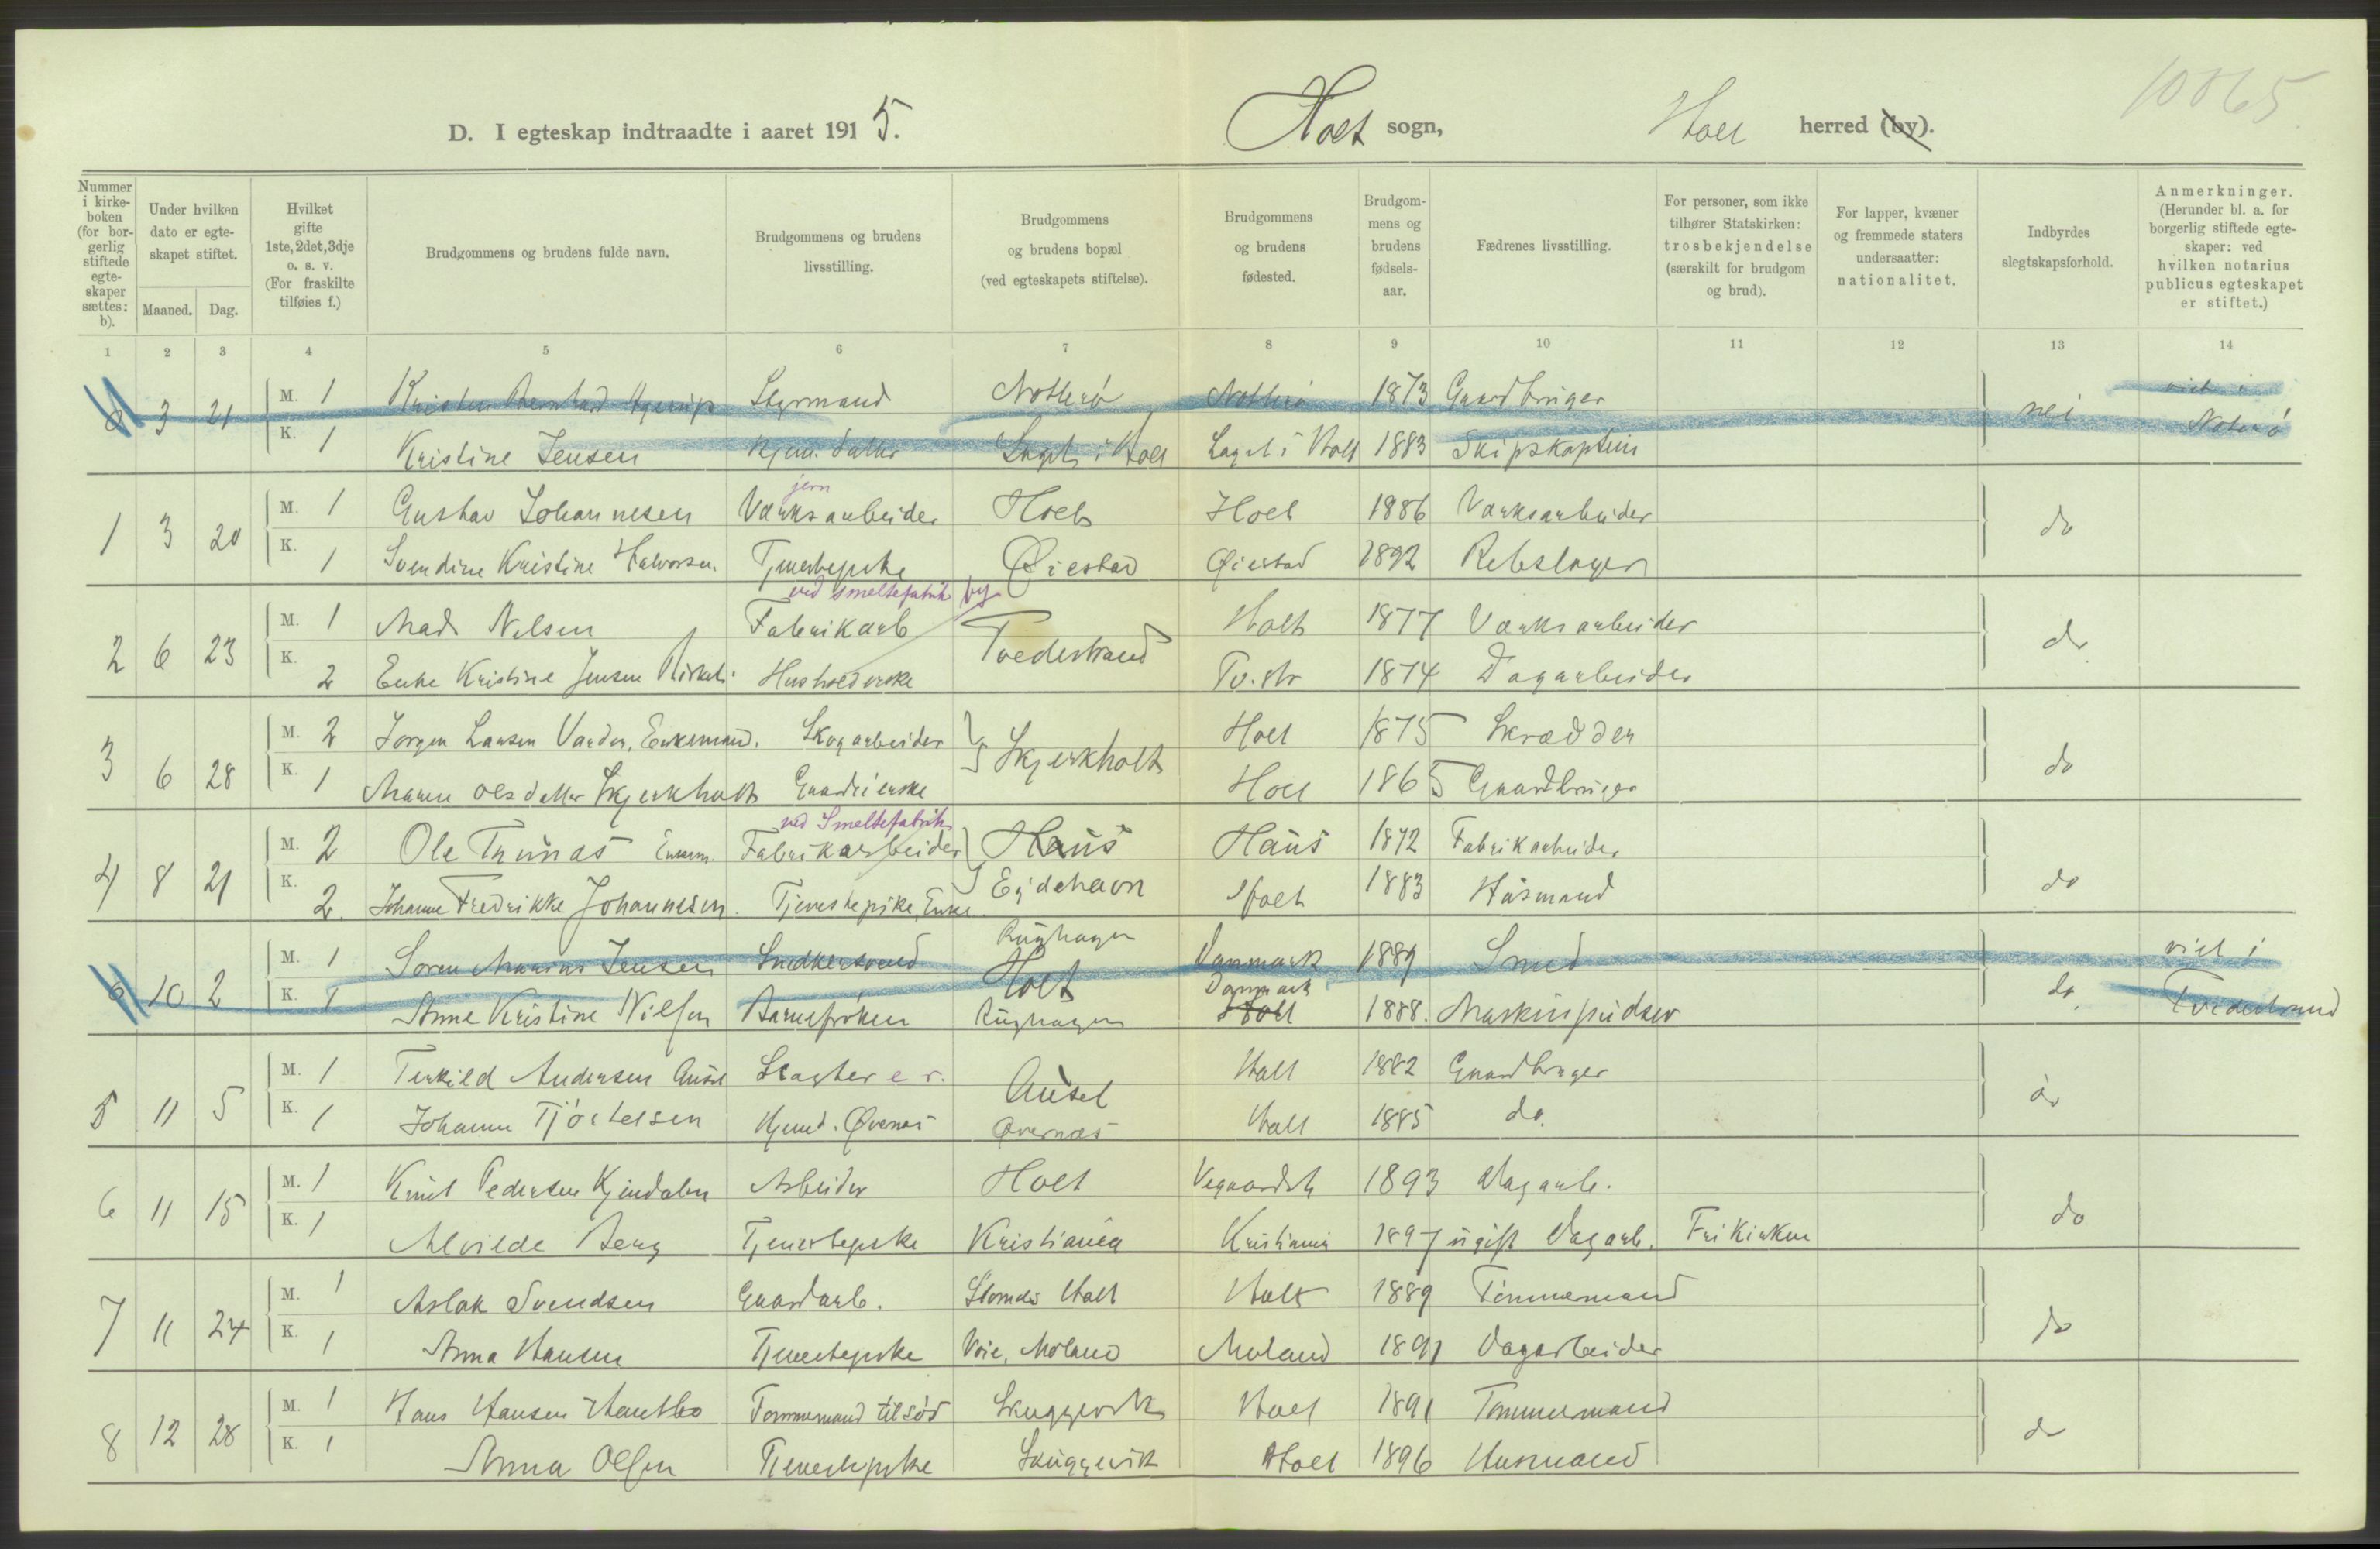 10865
D. I egteskap indtraadte i aaret 1915. Holt sogn, Holt herred (by).
Nummer i kirkeboken (for borgerlig stiftede egteskaper sættes: b).
Under hvilken dato er egteskapet stiftet.
Maaned. Dag.
Hvilket gifte 1ste, 2det, 3dje o. s. v. (For fraskilte tilføies f.)
Brudgommens og brudens fulde navn.
Brudgommens og brudens livsstilling.
Brudgommens og brudens bopæl (ved egteskapets stiftelse).
Brudgommens og brudens fødested.
Brudgommens og brudens fødselsaar.
Fædrenes livsstilling.
For personer, som ikke tilhører Statskirken: trosbekjendelse (særskilt for brudgom og brud).
For lapper, kvæner og fremmede staters undersaatter: nationalitet.
Indbyrdes slegtskapsforhold.
Anmerkninger. (Herunder bl. a. for borgerlig stiftede egteskaper: ved hvilken notarius publicus egteskapet er stiftet.)
1 2 3 4 5 6 7 8 9 10 11 12 13 14
3 21 M. 1 Styrmand Nøtterø Nøtterø 1873 Gaardbruger nei viet i
K. 1 Kristine Jensen Hjem. datter Laget i Holt Laget i Holt 1883 Skipskaptein Nøterø
jern
1 3 20 M. 1 Gustav Johannesen Værksarbeider Holt Holt 1886 Værksarbeider do
K. 1 Svendine Kristine Halvorsen Tjenestepike Øiestad Øiestad 1892 Rebslager
ved Smeltefabrik by
2 6 23 M. 1 Mads Nilsen Fabrikarb Tvedestrand Holt 1877 Værksarbeider do
K. 2 Enke Kristine Jensen Husholderske Tv.str 1874 Dagarbeider
3 6 28 M. 2 Jørgen Larsen Enkemand. Skogarbeider Skjerkholt Holt 1875 Skrædder do
K. 1 Maren Olsdatter Skjerkholt Gaardeierske Holt 1865 Gaardbruger
ved Smeltefabrik
4 8 21 M. 2 Ole Enkem. Fabrikarbeider 1872 Fabrikarbeider do
K. 2. Johanne Fredrikke Johannesen. Tjenestepike, Enke. Eydehavn Holt 1883 Husmand
Rughagen
10 2 M. 1 Søren Marius Jensen Snedkersvend Holt Danmark 1889 Smed do. viet i
Danmark
K. 1 Anne Kristine Nilsen Barnefrøken Rughagen Holt 1888. Maskinpudser Tvedestrand
5 11 5 M. 1 Terkild Andersen Ausel Slagter e. r. Ausel Holt 1882 Gaardbruger do
K. 1 Johanne Tjöstelsen Hjemd. Øvernes Øvernes Holt 1885 do.
6 11 15 M. 1 Knut Pedersen Kjendalen Arbeider Holt Vegaardsh 1893 Dagarb. do
K. 1 Alvilde Berg Tjenestepike Kristiania Kristiania 1897 ugift Dagarb. Frikirken
7 11 24 M. 1 Aslak Svendsen Gaardarb. Holt Holt 1889 Tömmermand do
K. 1 Anna Hansen Tjenestepike Voie, Moland Moland 1891 Dagarbeider
8 12 28 M. 1 Hans Hansen Tømmermand tilsös Skuggevik Holt 1891 Tømmermand do
K. 1 Anna Olsen Tjenestepike Skuggevik Holt 1896 Husmand